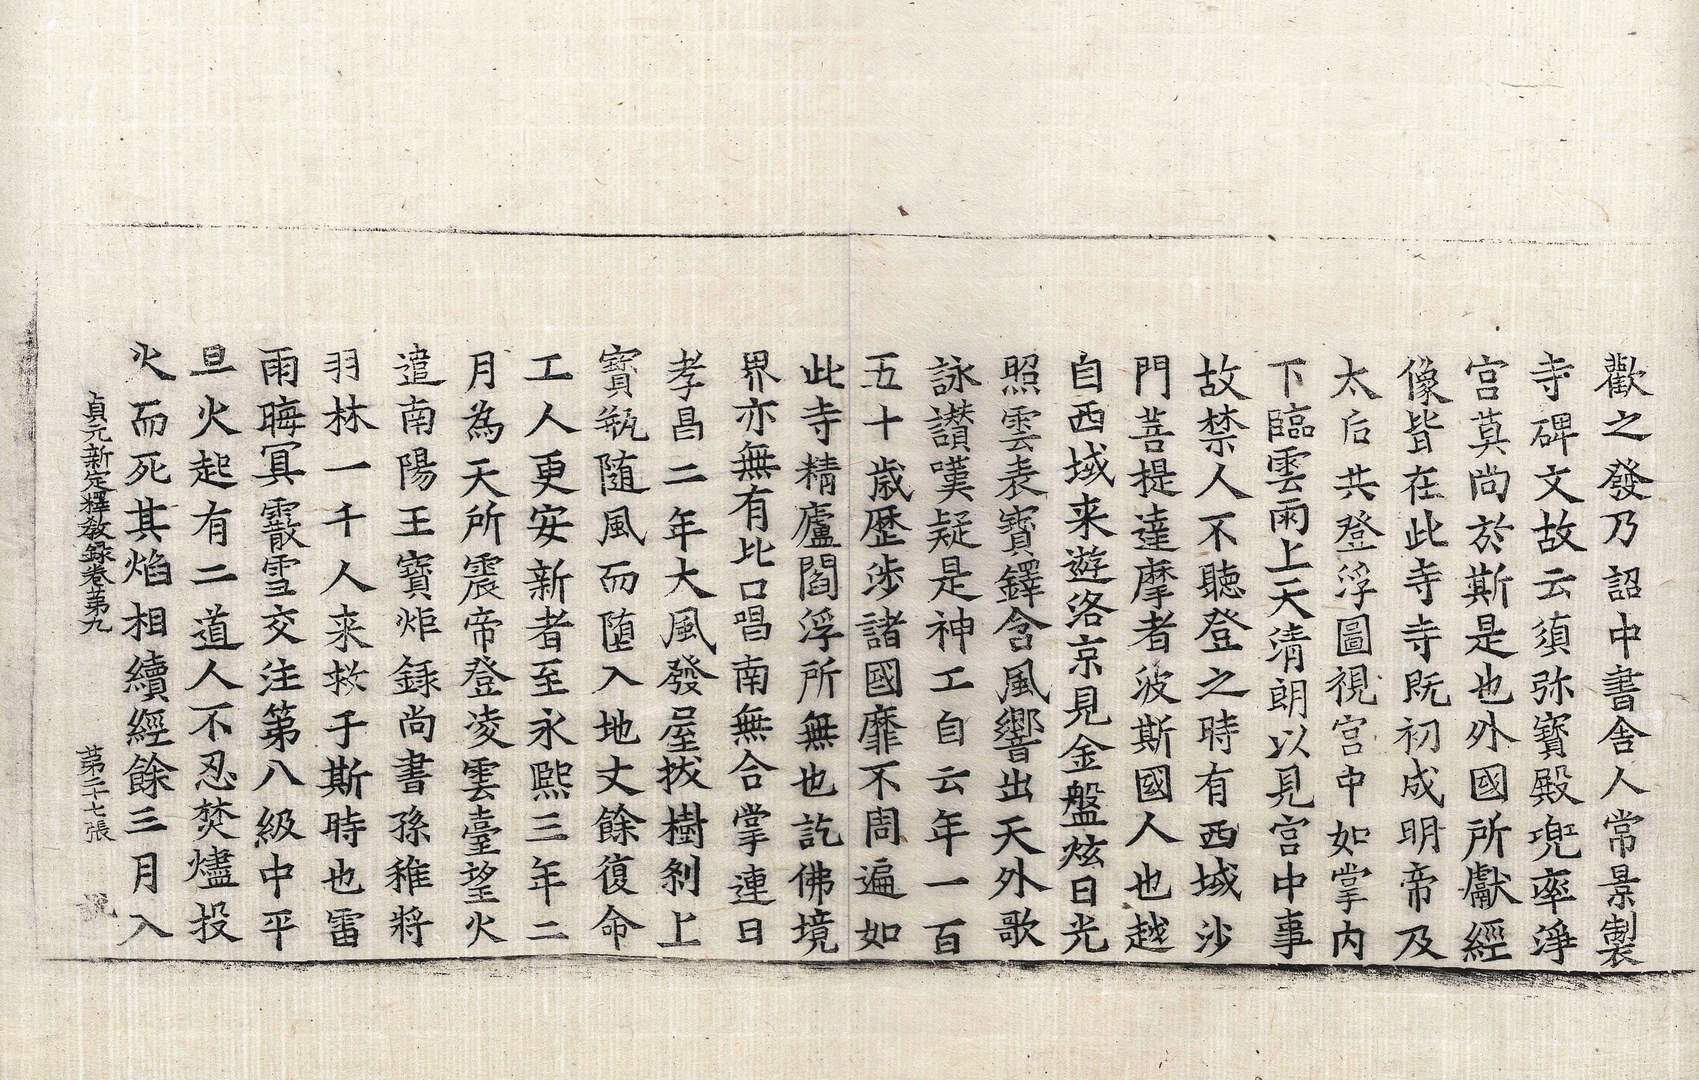 歡之發乃詔中書舍人常景製
寺碑文故云須弥寶殿兜率淨
宮莫尚於斯是也外國所獻經
像皆在此寺寺既初成明帝及
太后共登浮圖視宮中如掌內
下臨雲雨上天清朗以見宮中事
故禁人不聽登之時有西域沙
門菩提達摩者波斯國人也越
自西域来遊洛京見金盤炫日光
照雲表寶鐸含風響出天外歌
詠讃嘆疑是神工自云年一百
五十歲歷涉諸國靡不周遍如
此寺精廬閻浮所無也訖佛境
界亦無有比口唱南無合掌連日
孝昌二年大風發屋拔樹刹上
寶瓶随風而墮入地丈餘復命
工人更安新者至永熙三年二
月為天所震帝登凌雲臺望火
遣南陽王寶炬錄尚書孫稚將
羽林一千人来救于斯時也雷
雨晦冥霰雪交注第八級中平
旦火起有二道人不忍焚燼投
火而死其焰相續經餘三月入
貞元新定釋教錄卷第九 第二十七張